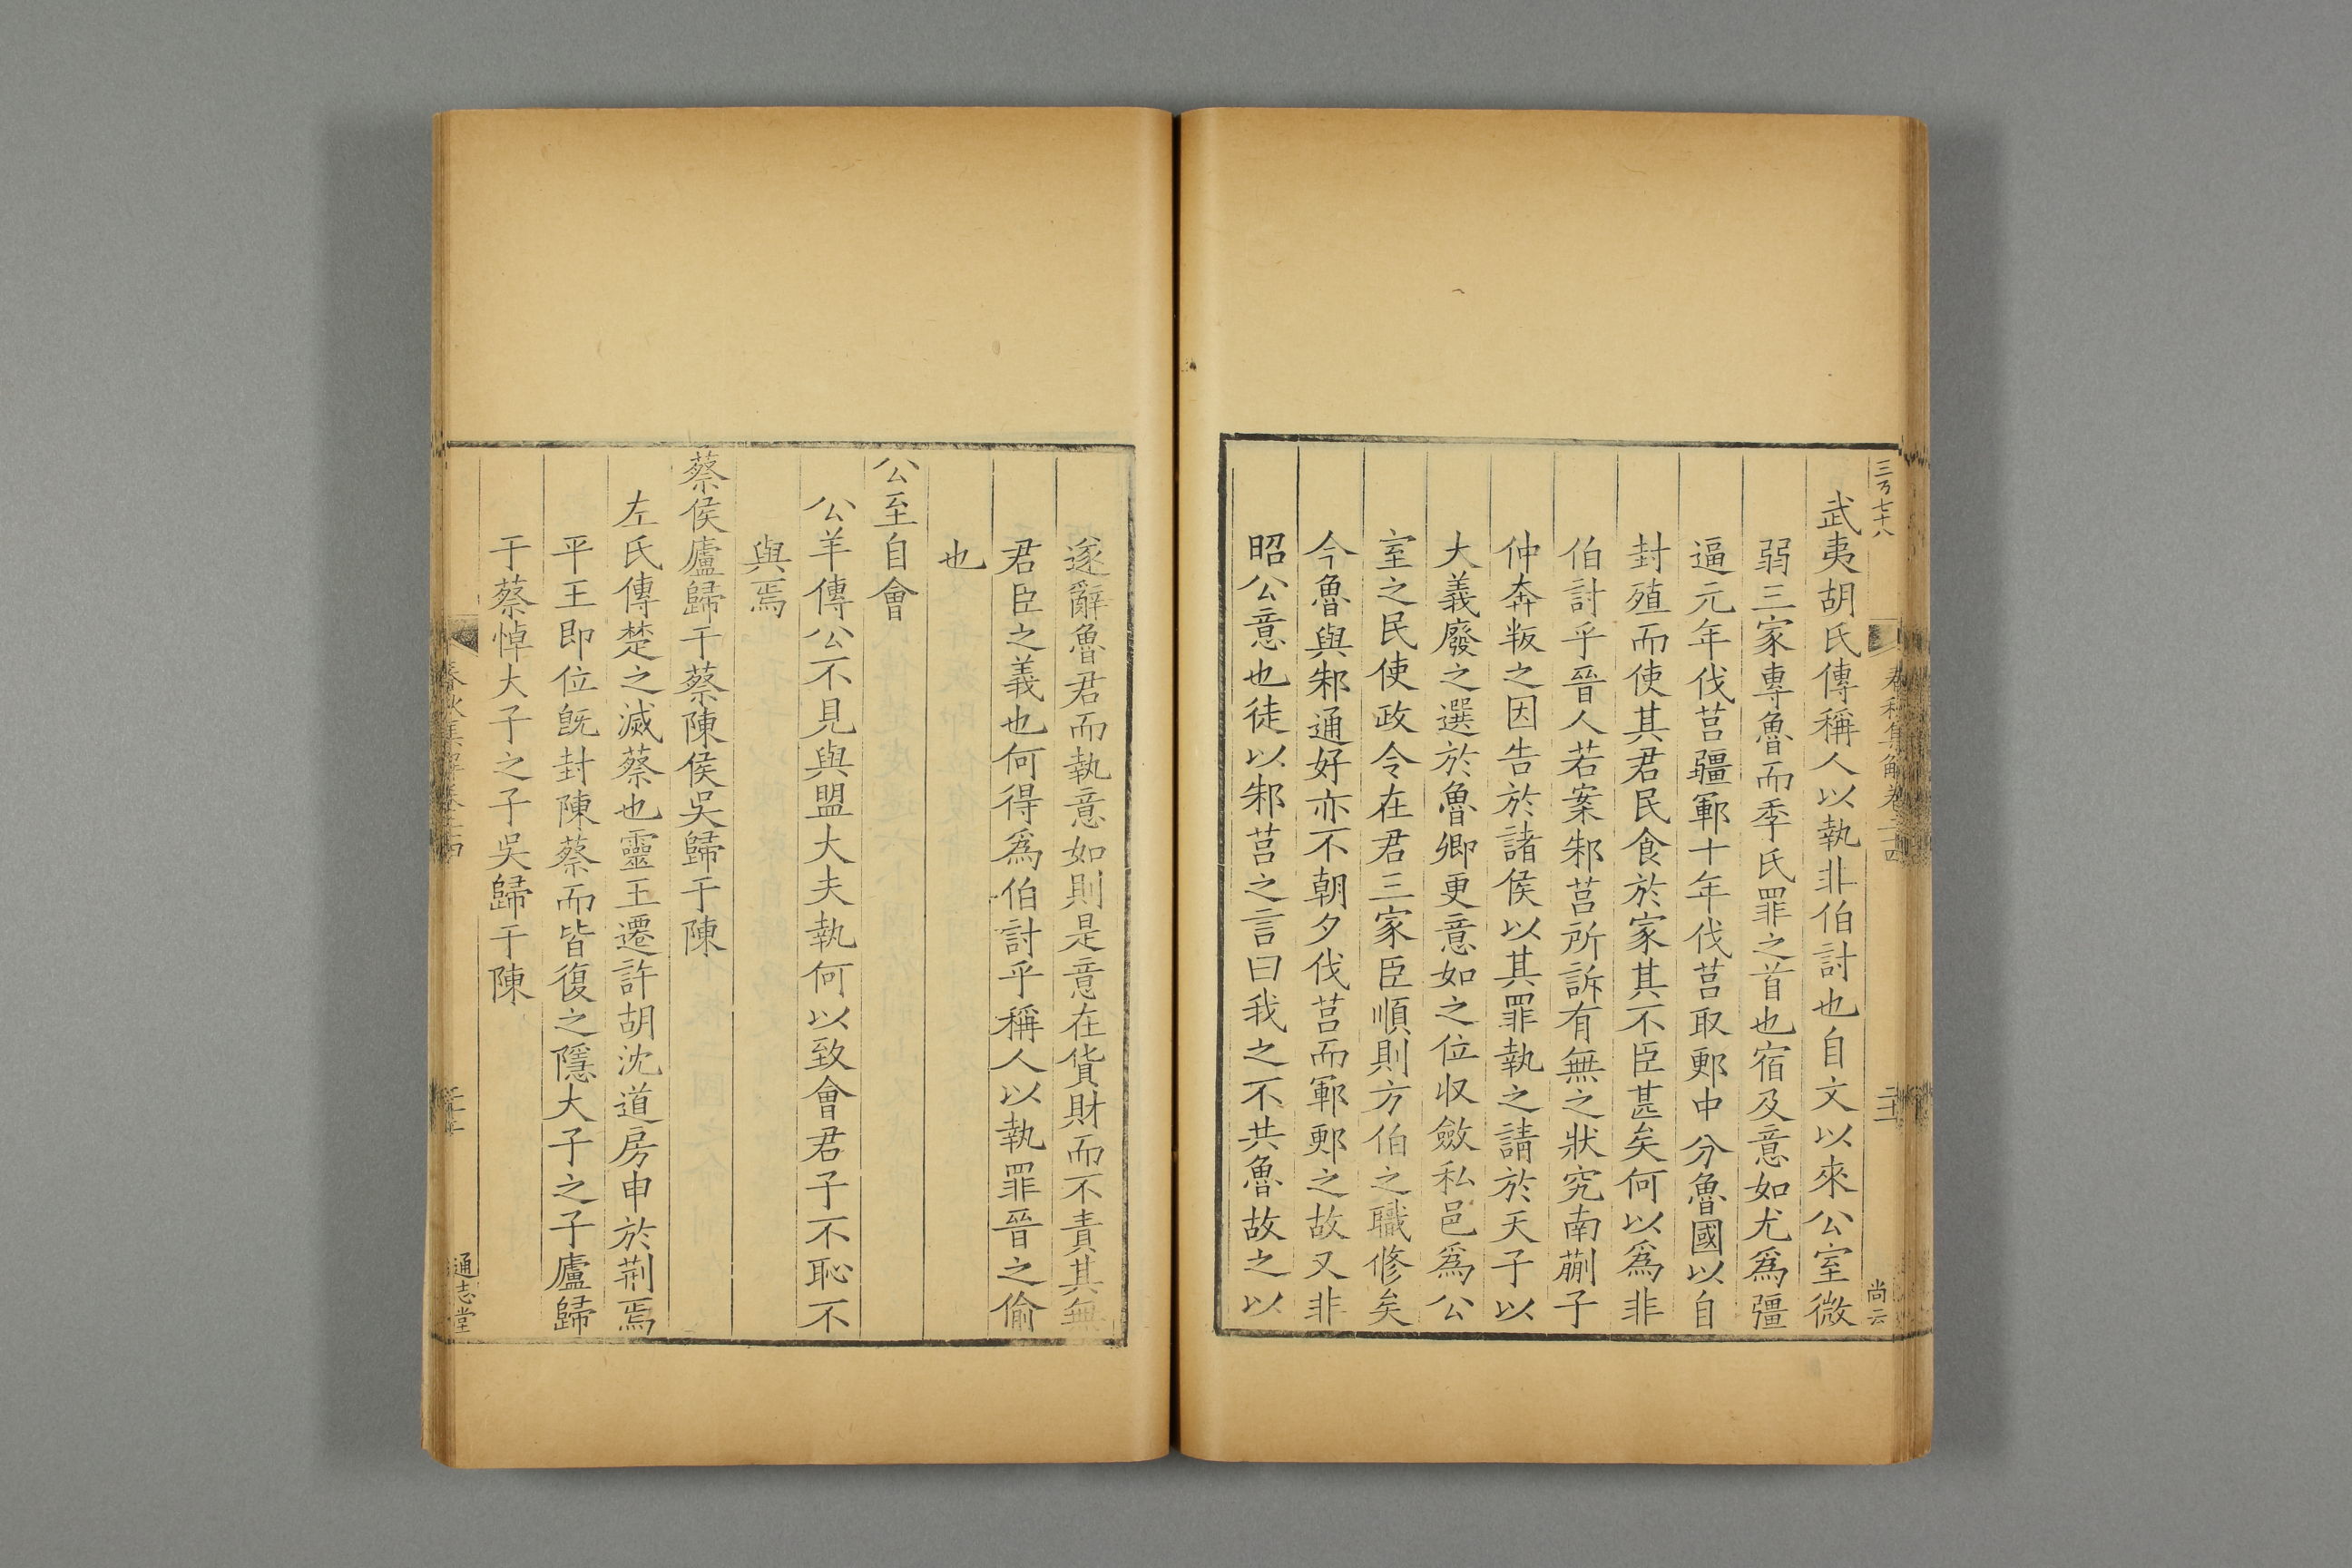 三万七十八
春秋集解卷二十四
尚云
武夷胡氏傳稱人以執非伯討也自文以來公室微
弱三家專魯而季氏罪之首也宿及意如尤爲彊
逼元年伐莒疆鄆十年伐莒取郠中分魯國以自
封殖而使其君民食於家其不臣甚矣何以爲非
伯討乎晉人若案邾莒所訴有無之狀究南蒯子
仲奔叛之因告於諸侯以其罪執之請於天子以
大義廢之選於魯卿更意如之位收斂私邑爲公
室之民使政令在君三家臣順則方伯之職修矣
今魯與邾通好亦不朝夕伐莒而鄆郠之故又非
昭公意也徒以邾莒之言曰我之不共魯故之以
遂辭魯君而執意如則是意在貨財而不責其無
君臣之義也何得爲伯討乎稱人以執罪晉之偷
也
公至自會
公羊傳公不見與盟大夫執何以致會君子不恥不
與焉
蔡侯廬歸于蔡陳侯吳歸于陳
左氏傳楚之滅蔡也靈王遷許胡沈道房申於荆焉
平王即位旣封陳蔡而皆復之隱大子之子廬歸
于蔡悼大子之子吳歸于陳
通志堂